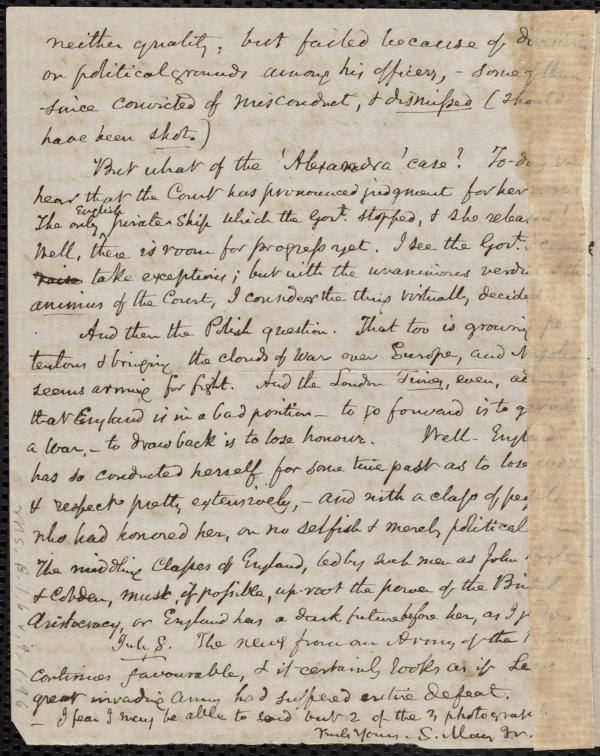 neither quality, but failed because of
on political grounds among his officers, - some of them
since convicted of misconduct, & dismissed (should
have been shot.)
But what of the 'Alexandra' case? To-day we
hear that the Court has pronounced judgment for her
The only English privateer ship which the Govt. stopped, & she released!
Well, there is room for progress yet. I see the Govt.
take exceptions; but with the unanimous verdict &
animus of the Court, I consider the thing virtually decided
And then the Polish question. That too is growing
tentous & bringing the clouds of War over Europe, and
seems arming for fight. And the London Times, even,
that England is in a bad position - to go forward is to
a War, - to draw back is to lose honour. Well - England
has so conducted herself for some time past as to lose
& respect pretty extensively, - and with a class of people
who had honored her, on no selfish & merely political
The middling Classes of England, led by such men as John
& Cobden, must, if possible, up-root the power of the
Aristocracy, or England has a dark future before her, as I
July 8. The news from our Army of the
continues favourable, & it certainly looks as if
great invading army had suffered entire defeat.
- I fear I may be able to send but 2 of the 3 photographs
Truly Yours, S. May Jr.
MS. B.1.6 v.9, 196